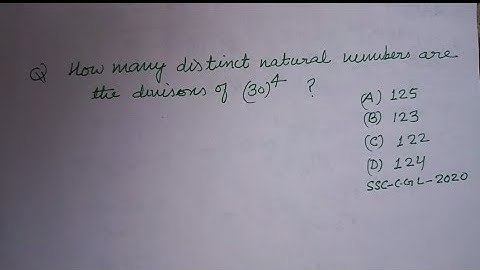 Q How many distinct natural numbers are
the divisors of (30)⁴ ?
(A) 125
(B) 123
(C) 122
(D) 124
SSC-CGL-2020